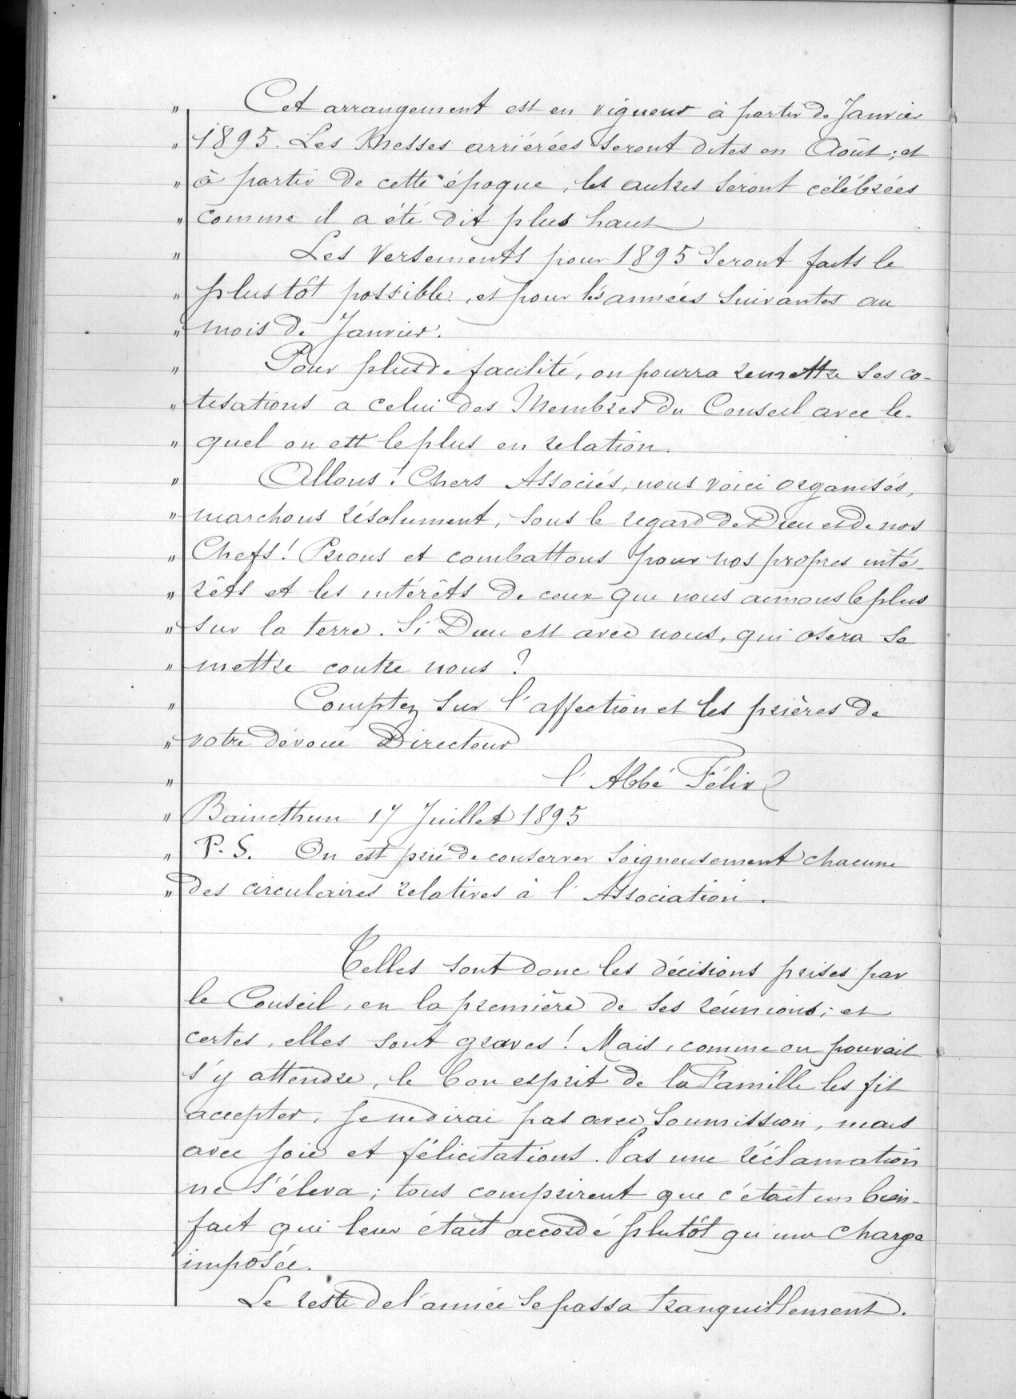 " Cet arrangement est en vigueur à partir de Janvier
" 1895. Les Messes arriérées seront dites en Août ; et
" à partir de cette époque, les autres seront célébrées
" comme il a été dit plus haut
" Les Versements pour 1895 seront faits le
" plus tôt possible, et pour les années suivantes au
" mois de Janvier.
" Pour plus de facilité, on pourra remettre ses co-
" tisations a celui des Membres du Conseil avec le-
" quel on est le plus en relation.
" Allons ! Chers Associés, nous voici organisés,
" marchons résolument, sous le regard de Dieu et de nos
" Chefs ! Prions et combattons pour nos propres inté-
" rêts et les intérêts de ceux que nous aimons le plus
" sur la terre. Si Dieu est avec nous, qui osera se
" mettre contre nous ?
" Comptez sur l'affection et les prières de
" votre dévoué Directeur
" l'Abbé Félix
" Baincthun 17 Juillet 1895
" P.S. On est prié de conserver soigneusement chacune
" des circulaires relatives à l'Association.
Telles sont donc les décisions prises par
le Conseil, en la première de ses réunions ; et
certes, elles sont graves ! Mais, comme on pouvait
s'y attendre, le bon esprit de la Famille les fit
accepter, je ne dirai pas avec soumission, mais
avec joie et félicitations. Pas une réclamation
ne s'éleva ; tous comprirent que c'était un bien-
fait qui leur était accordé plutôt qu'une charge
imposée.
Le reste de l'année se passa tranquillement.